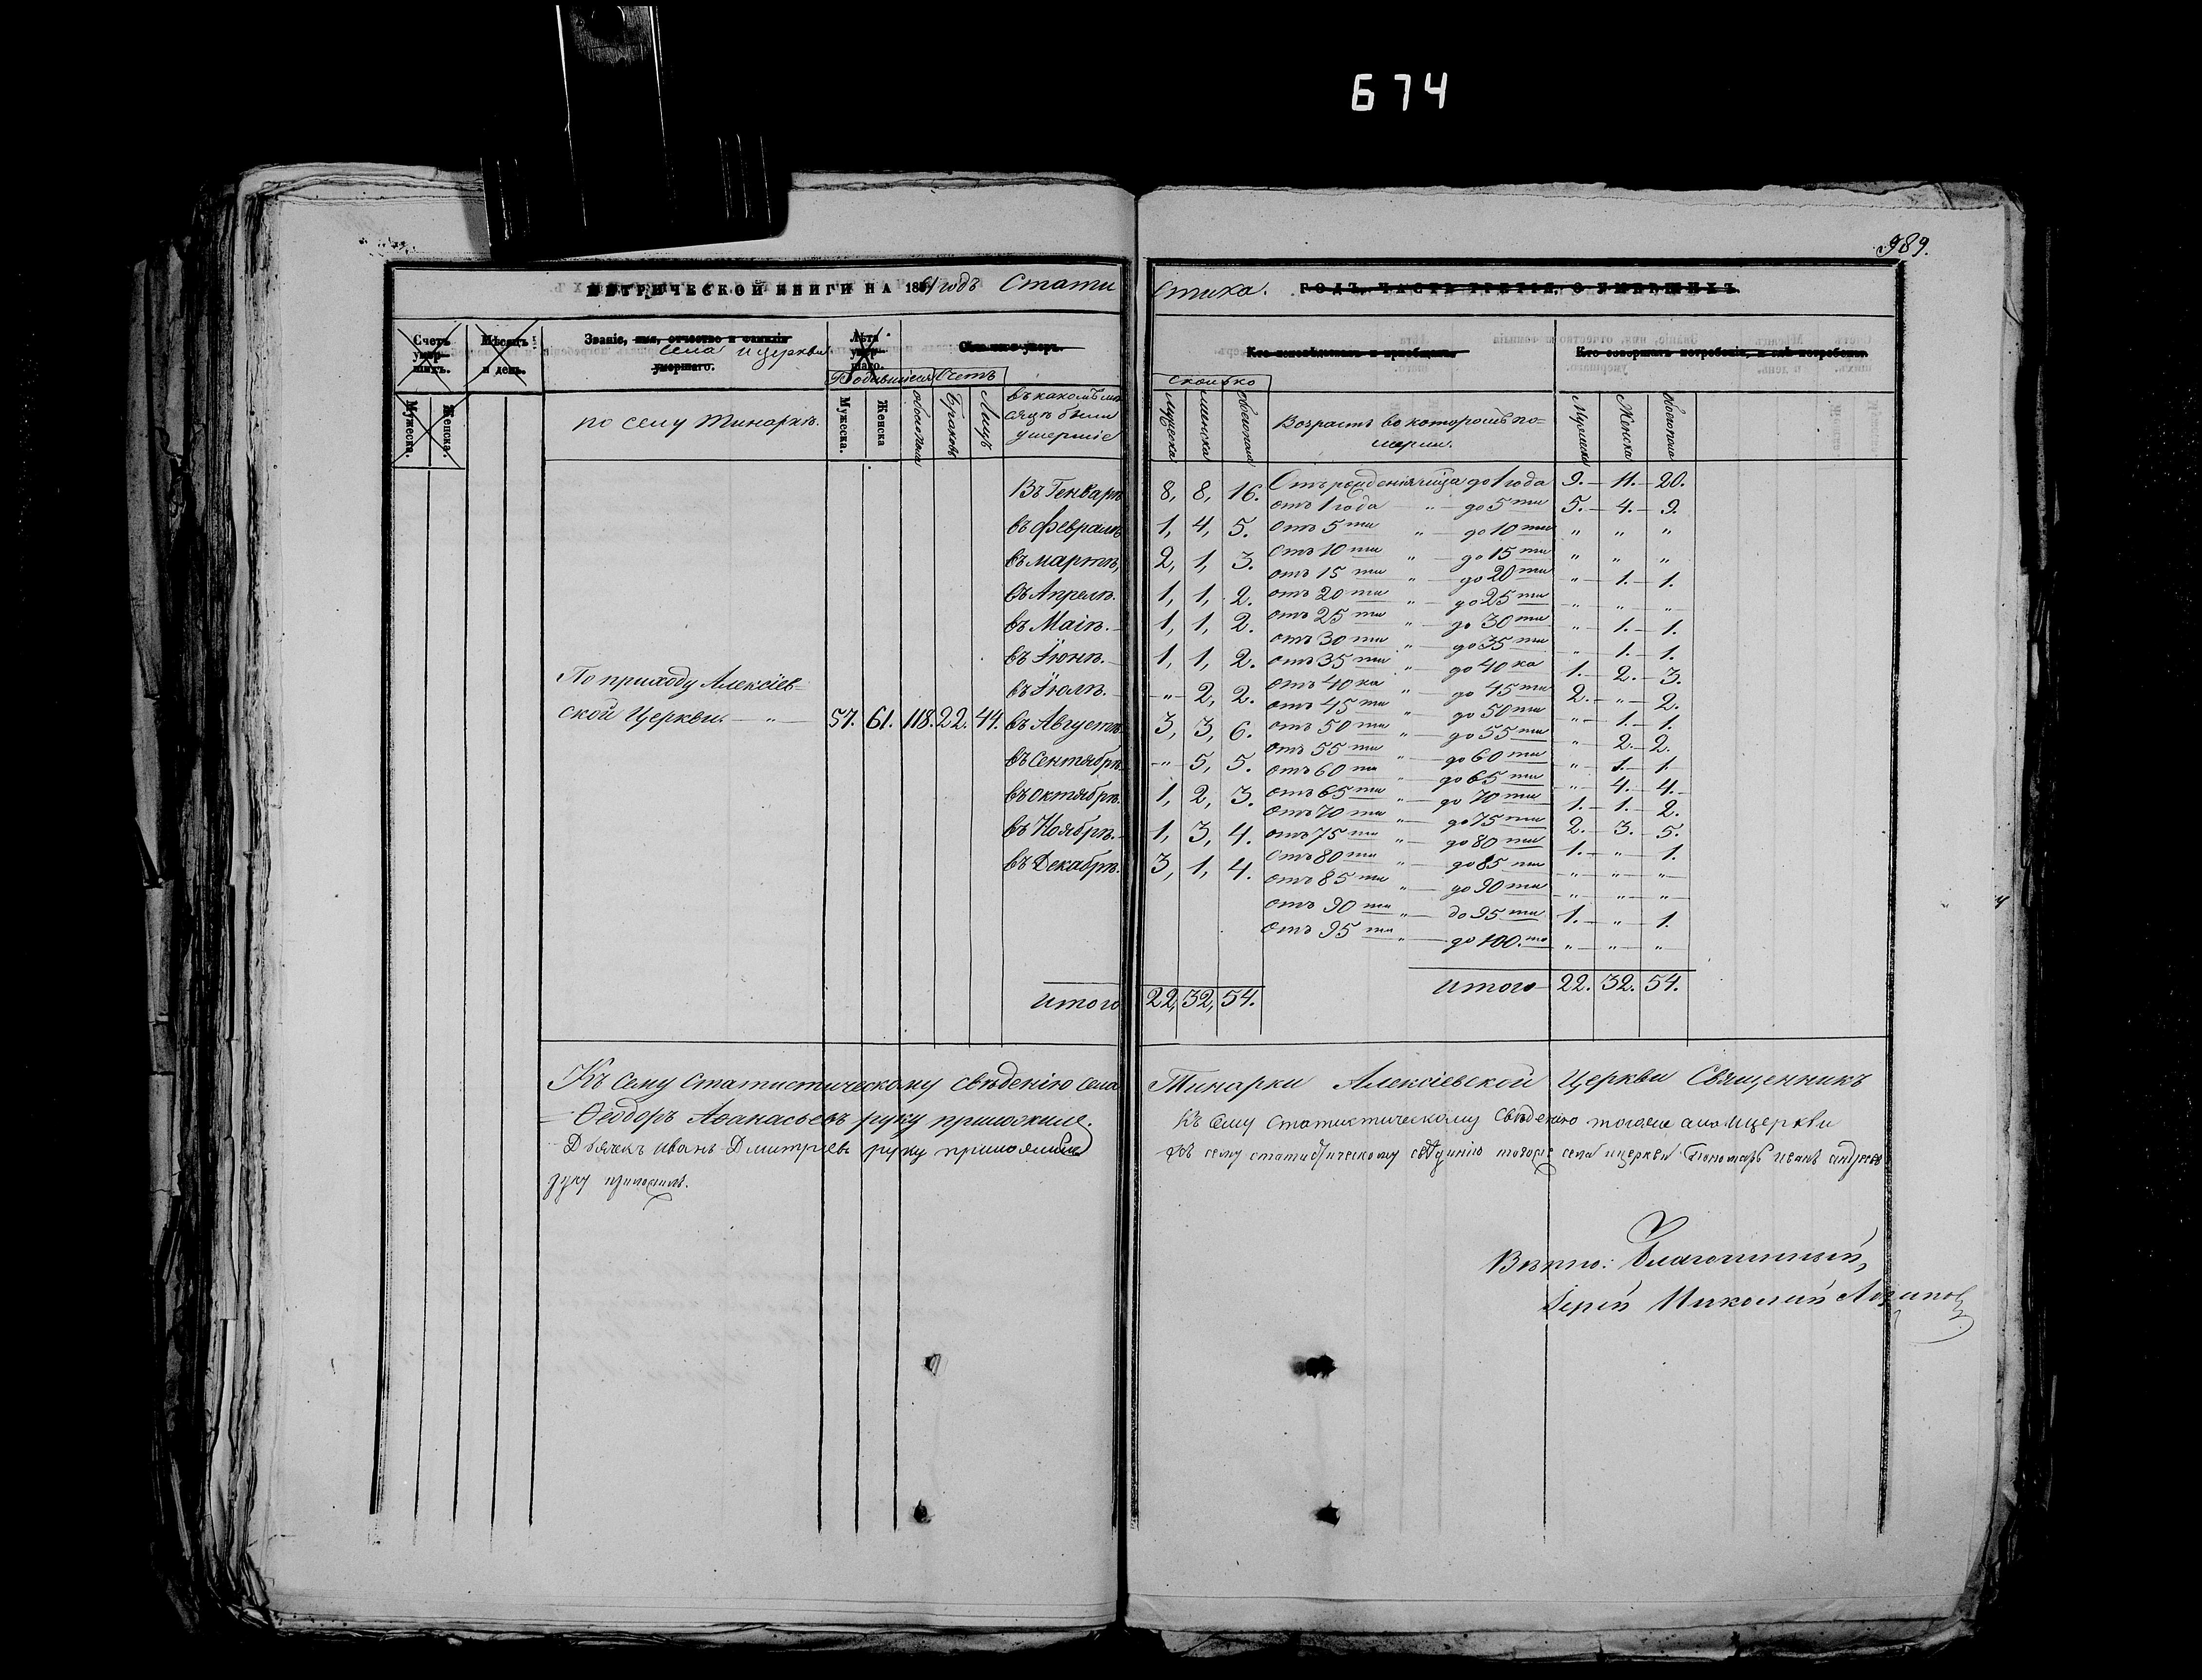 674
989.
МЕТРИЧЕСКОЙ КНИГИ НА 1861 годъ Стати
стика. ГОДЪ, ЧАСТЬ ТРЕТІЯ, О УМЕРШИХЪ.
Счетъ умершихъ.
Мѣсяцъ и день.
Званіе, имя, отчество и фамилія умершаго.
села и церкви
Лѣта умершаго.
Отъ чего умеръ.
Кто исповѣдывалъ и пріобщалъ.
Кто совершалъ погребеніе, и гдѣ погребены.
Мужеска. Женска.
по селу Тинаркѣ.
Родившіеся Счетъ
Мужеска. Женска обоего пола Браковъ Лицъ
въ какомъ мѣ
сяцѣ были
умершіе
сколько
Мужеска Женска обоего пола
Возрастъ въ которомъ по=
мерли.
Мужеска Женска обоего пола
По приходу Алексіев=
ской Церкви. — „ — 57. 61. 118. 22. 44.
Въ Генварѣ 8, 8, 16.
въ Февралѣ 1, 4, 5.
въ мартѣ, 2, 1, 3.
въ Апрелѣ. 1, 1, 2.
въ Маіѣ. 1, 1, 2.
въ Іюнѣ. 1, 1, 2.
въ Іюлѣ. „ 2, 2.
въ Августѣ 3, 3, 6.
въ Сентябрѣ „ 5, 5.
въ октябрѣ. 1, 2, 3.
въ Ноябрѣ. 1, 3, 4.
въ Декабрѣ. 3, 1, 4.
итого 22, 32, 54.
Отъ рожденія до 1 года 9. — 11. — 20.
отъ 1 года „ — до 5 ти 5. — 4. — 9.
отъ 5 ти „ — до 10 ти „ „ „
отъ 10 ти „ — до 15 ти „ „ „
отъ 15 ти „ — до 20 ти „ — 1. — 1.
отъ 20 ти „ — до 25 ти „ „ „
отъ 25 ти „ — до 30 ти „ — 1. — 1.
отъ 30 ти „ — до 35 ти „ — 1. — 1.
отъ 35 ти „ — до 40 ка 1. — 2. — 3.
отъ 40 ка „ — до 45 ти 2. — „ — 2.
отъ 45 ти „ — до 50 ти „ — 1. — 1.
отъ 50 ти „ — до 55 ти „ — 2. — 2.
отъ 55 ти „ — до 60 ти „ — 1. — 1.
отъ 60 ти „ — до 65 ти „ — 4. — 4.
отъ 65 ти „ — до 70 ти 1. — 1. — 2.
отъ 70 ти „ — до 75 ти 2. — 3. — 5.
отъ 75 ти „ — до 80 ти 1. — „ — 1.
отъ 80 ти „ — до 85 ти „ „ „
отъ 85 ти „ — до 90 ти „ „ „
отъ 90 ти „ — до 95 ти 1. — „ — 1.
отъ 95 ти „ — до 100. та „ „ „
итого 22. 32. 54.
Къ сему статистическому свѣденію села Тинарки Алексіевской Церкви Священникъ
Ѳеодоръ Аѳанасьевъ руку приложилъ. Къ сему статистическому свѣденію тогоже села и церкви
Дьячекъ Иванъ Дмитріевъ руку приложилъ Къ сему статистическому свѣдинію тогоже села и церкви Пономарь Иванъ Андреевъ
руку приложилъ.
Вѣрно: Благочинный,
Іерей Николай